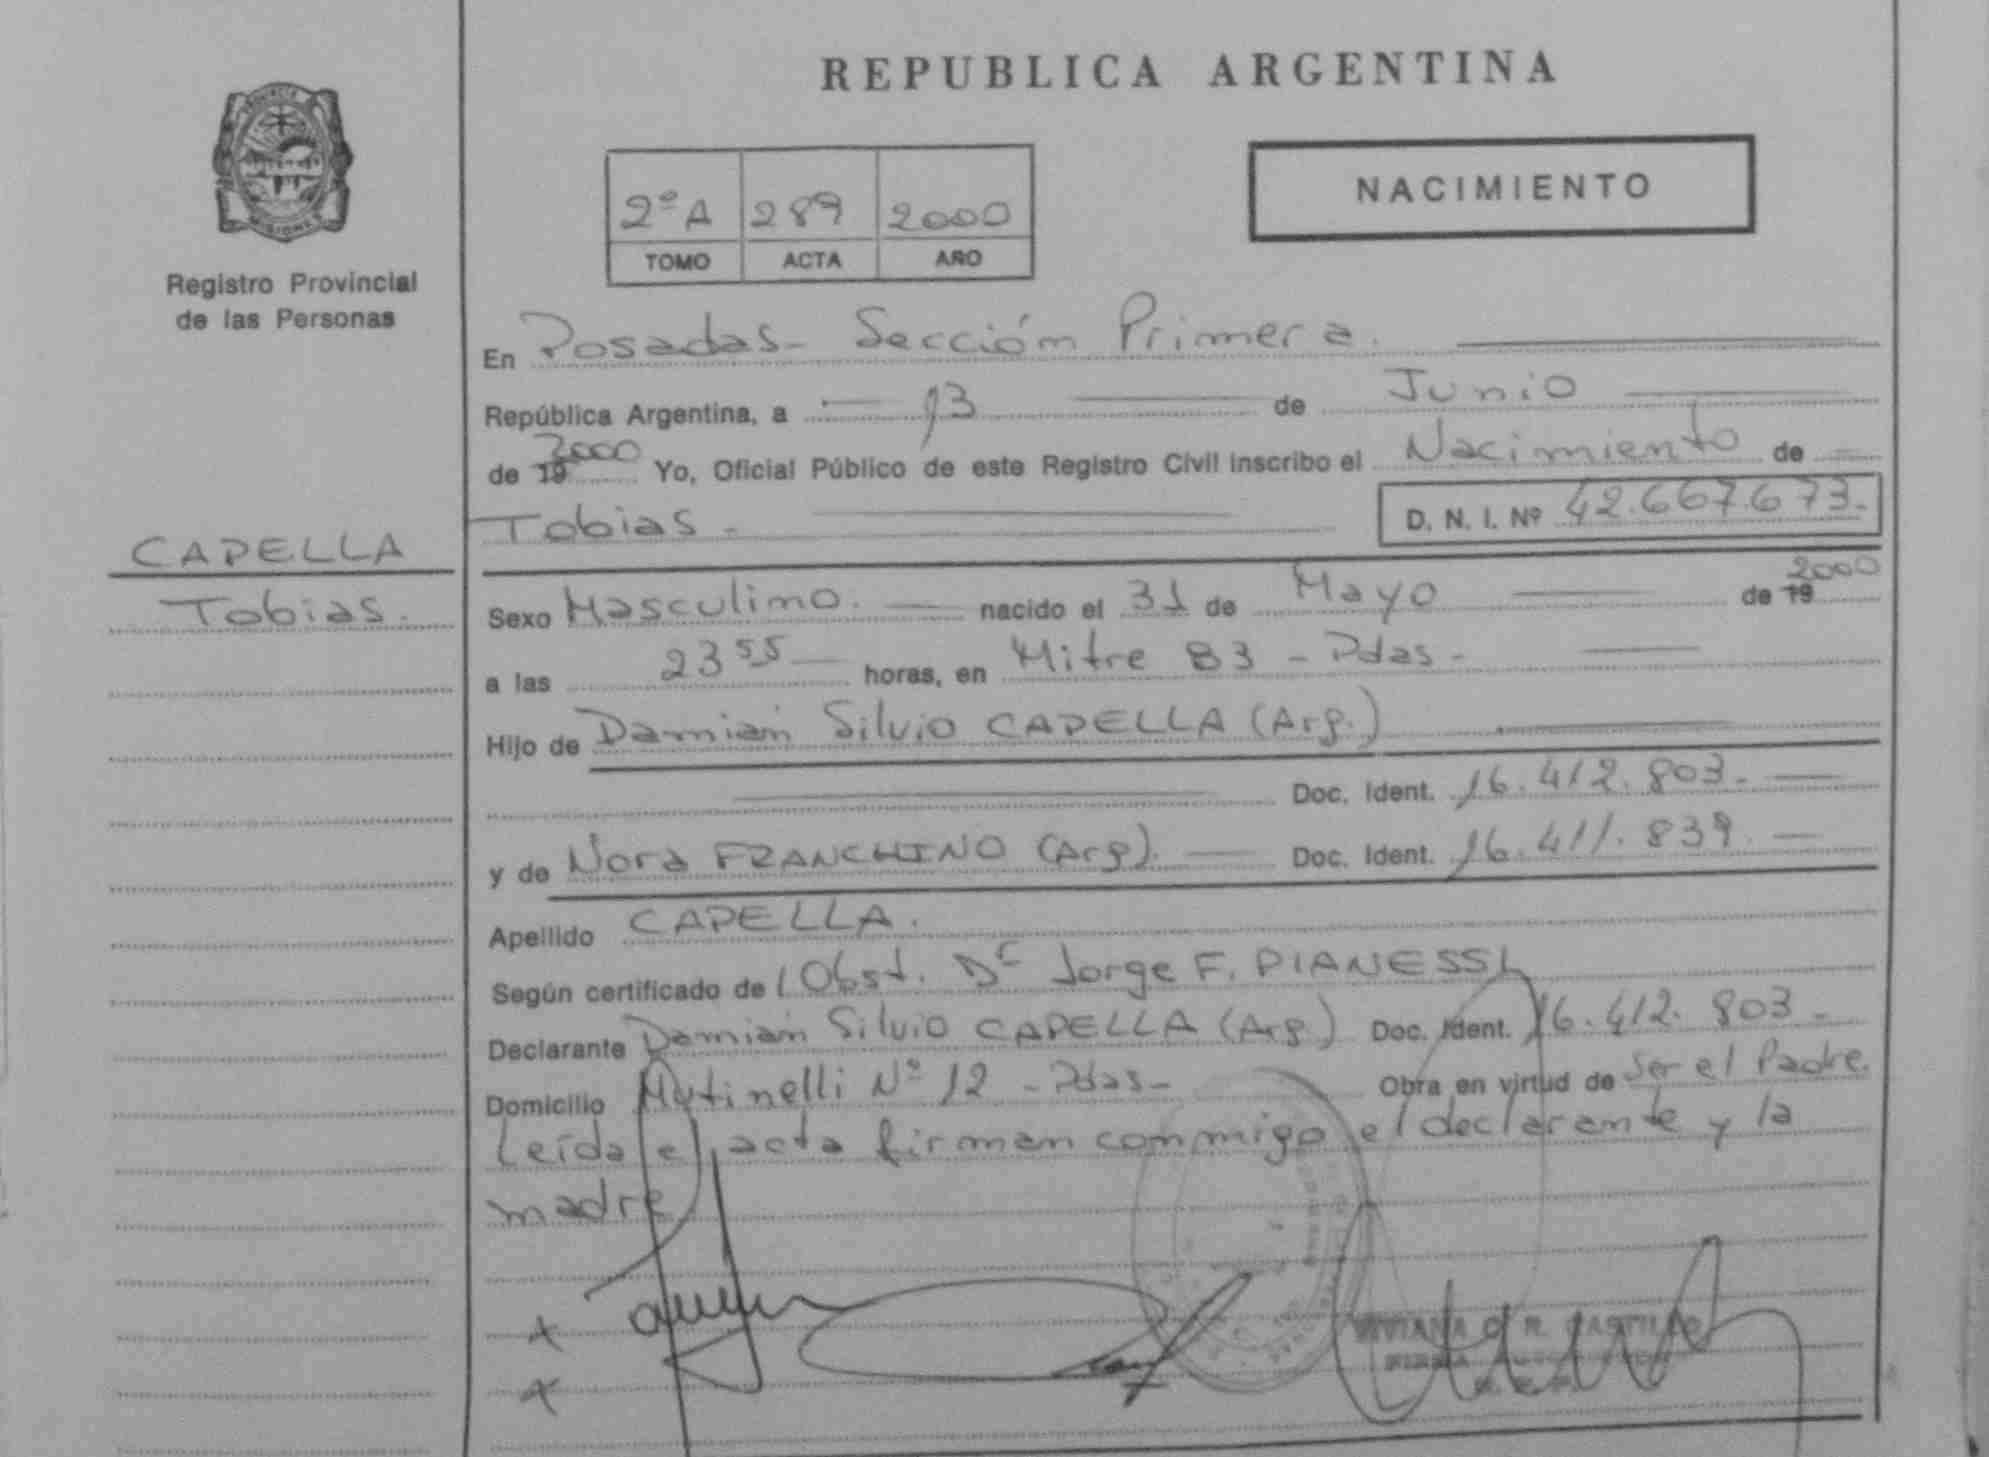 REPUBLICA ARGENTINA
PROVINCIA
MISIONES
Registro Provincial
de las Personas
NACIMIENTO
2º A 289 2000
TOMO ACTA AÑO
En Posadas - Sección Primera.
República Argentina, a 13 de Junio
de 19 2000 Yo, Oficial Público de este Registro Civil inscribo el Nacimiento de
Tobias - D. N. I. Nº 42.667.673.-
CAPELLA
Tobias.
Sexo Masculino. nacido el 31 de Mayo de 19 2000
a las 23 55 horas, en Mitre 83 - Pdas -
Hijo de Damián Silvio CAPELLA (Arg.)
Doc. Ident. 16.412.803.-
y de Nora FRANCHINO (Arg). Doc. Ident. 16.411.839.
Apellido CAPELLA.
Según certificado de Obst. Dr Jorge F. PIANESSI
Declarante Damián Silvio CAPELLA (Arg.) Doc. Ident. 16.412.803 -
Domicilio Mutinelli Nº 12 - Pdas - Obra en virtud de Ser el Padre.
Leída el acta firman conmigo el declarante y la
madre
VIVIANA R. CASTILLO
FIRMA